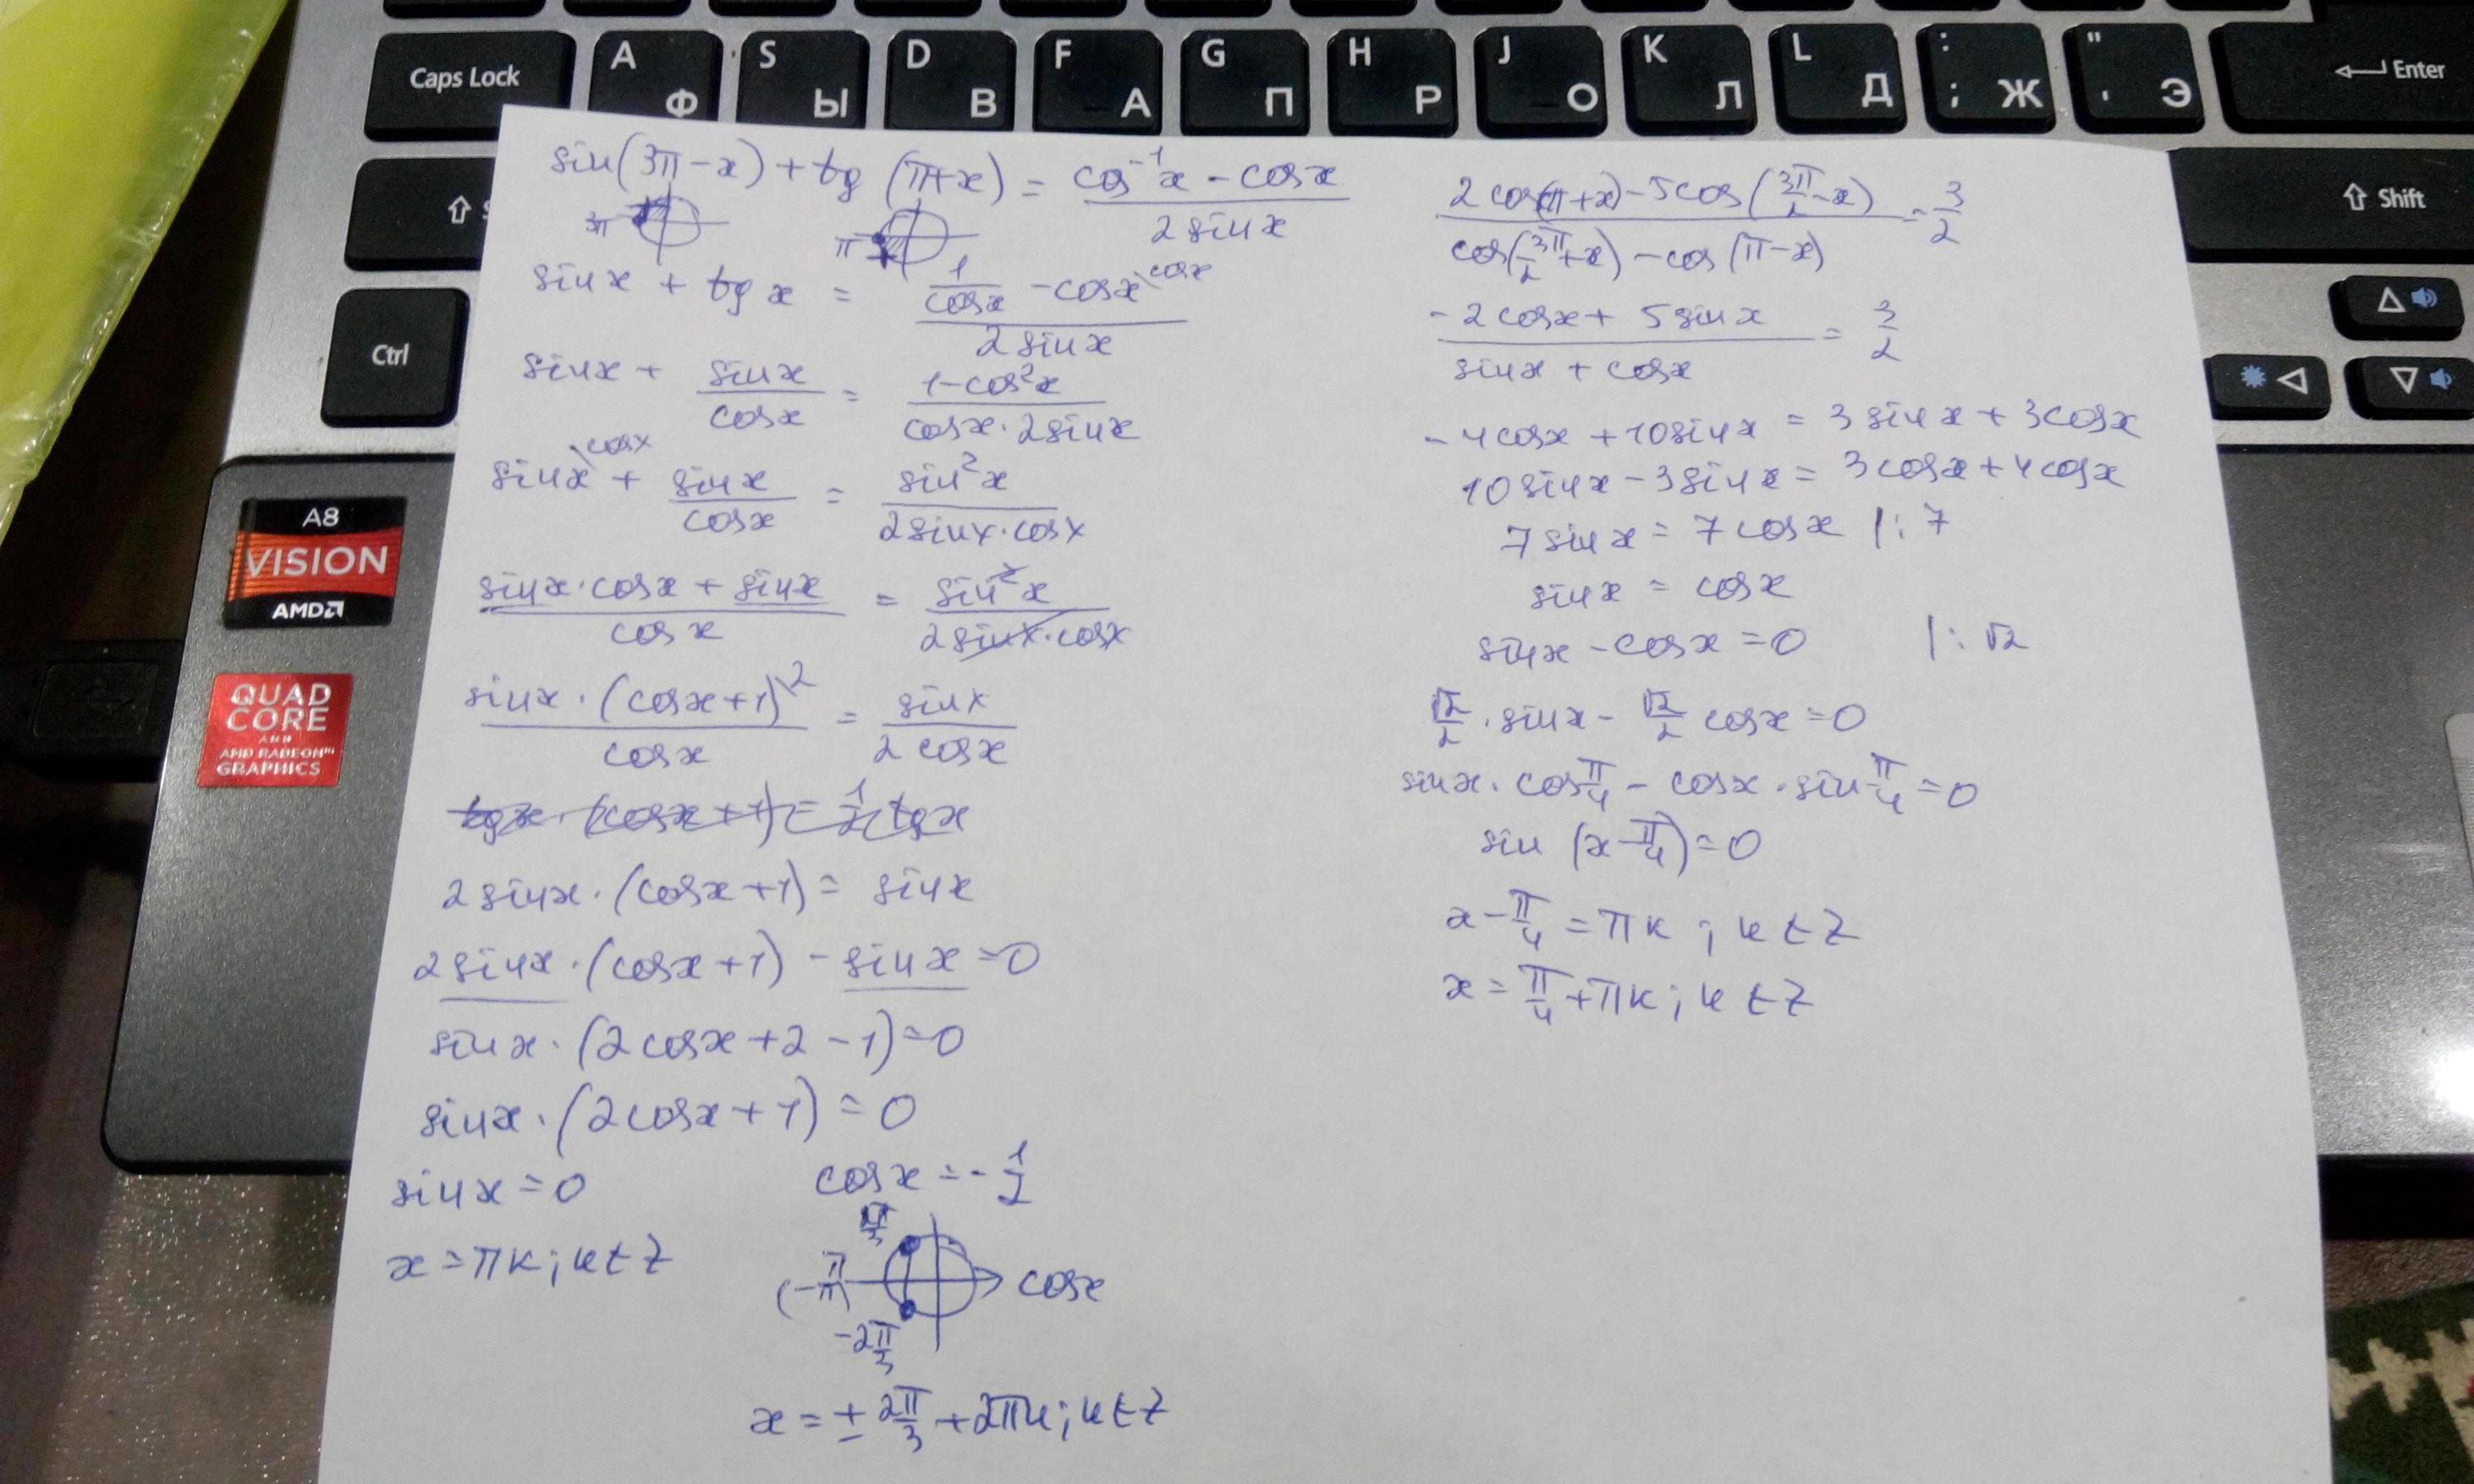 Caps Lock
A Ф
S Ы
D В
F А
G П
H Р
J О
K Л
L Д
: ; Ж
" ' Э
Enter
Shift
Ctrl
A8
VISION
AMD
QUAD
CORE
AND
AMD RADEON™
GRAPHICS
sin(3π-x)+tg(π+x) = (cos⁻¹x - cosx)/(2sinx)
3π
π
sinx + tgx = (1/cosx - cosx\cosx)/(2sinx)
sinx + sinx/cosx = (1-cos²x)/(cosx·2sinx)
sinx\cosx + sinx/cosx = sin²x/(2sinx·cosx)
(sinx·cosx + sinx)/cosx = sin²x/(2sinx·cosx)
(sinx·(cosx+1)\2)/cosx = sinx/(2cosx)
tgx·(cosx+1) = 1/2 tgx
2sinx·(cosx+1) = sinx
2sinx·(cosx+1) - sinx = 0
sinx·(2cosx+2-1) = 0
sinx·(2cosx+1) = 0
sinx = 0
x = πk; k∈Z
cosx = -1/2
cosx
-2π/3
x = ± 2π/3 + 2πk; k∈Z
(2cos(π+x) - 5cos(3π/2-x))/(cos(3π/2+x) - cos(π-x)) = 3/2
(-2cosx + 5sinx)/(sinx + cosx) = 3/2
-4cosx + 10sinx = 3sinx + 3cosx
10sinx - 3sinx = 3cosx + 4cosx
7sinx = 7cosx |:7
sinx = cosx
sinx - cosx = 0 |:√2
√2/2·sinx - √2/2 cosx = 0
sinx·cosπ/4 - cosx·sinπ/4 = 0
sin(x-π/4) = 0
x - π/4 = πk; k∈Z
x = π/4 + πk; k∈Z